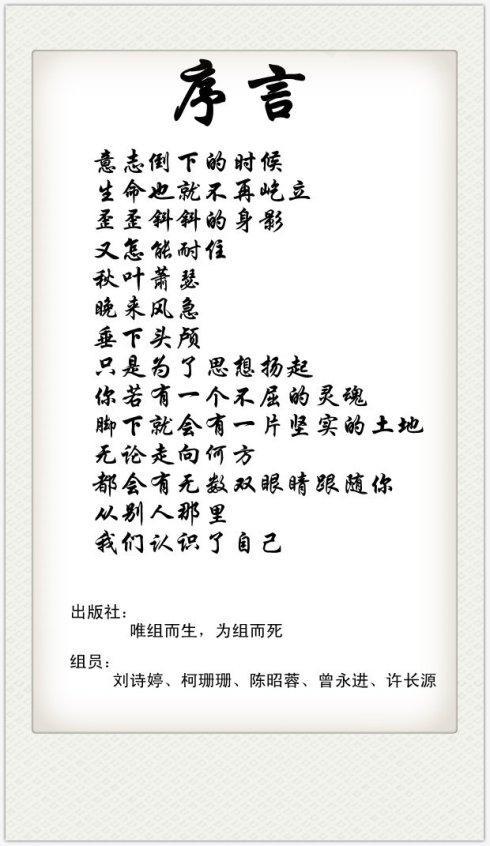 序言
意志倒下的时候
生命也就不再屹立
歪歪斜斜的身影
又怎能耐住
秋叶萧瑟
晚来风急
垂下头颅
只是为了思想扬起
你若有一个不屈的灵魂
脚下就会有一片坚实的土地
无论走向何方
都会有无数双眼睛跟随你
从别人那里
我们认识了自己
出版社：
唯组而生，为组而死
组员：
刘诗婷、柯珊珊、陈昭蓉、曾永进、许长源